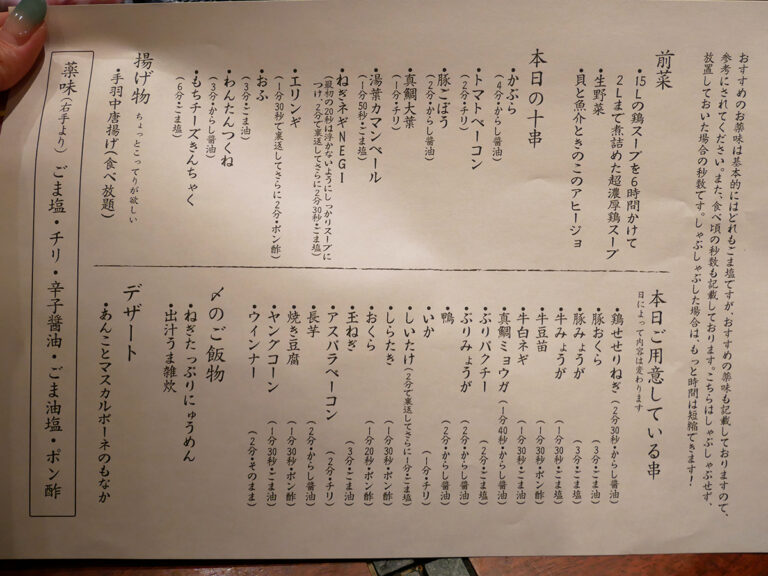 おすすめのお薬味は基本的にはどれもごま塩ですが、おすすめの薬味も記載しておりますので、
参考にされてください。また、食べ頃の秒数も記載しております。こちらはしゃぶしゃぶせず、
放置しておいた場合の秒数です。しゃぶしゃぶした場合は、もっと時間は短縮できます!
前菜
・15Lの鶏スープを6時間かけて
2Lまで煮詰めた超濃厚鶏スープ
・生野菜
・貝と魚介ときのこのアヒージョ
本日の十串
・かぶら
(4分・からし醤油)
・トマトベーコン
(2分・チリ)
・豚ごぼう
(2分・からし醤油)
・真鯛大葉
(1分・チリ)
・湯葉カマンベール
(1分50秒・ごま塩)
・ねぎネギNEGI
(最初の20秒は浮かないようにしっかりスープに
つけ、2分で裏返してさらに2分30秒・ごま塩)
・エリンギ
(1分30秒で裏返してさらに2分・ポン酢)
・おふ
(3分・ごま油)
・わんたんつくね
(3分・からし醤油)
・もちチーズきんちゃく
(6分・ごま塩)
揚げ物 ちょっとこってりが欲しい
・手羽中唐揚げ(食べ放題)
本日ご用意している串
日によって内容は変わります
・鶏せせりねぎ(2分30秒・からし醤油)
・豚おくら (3分・ごま油)
・豚みょうが (3分・ごま塩)
・牛みょうが (1分30秒・ごま塩)
・牛豆苗 (1分30秒・ポン酢)
・牛白ネギ (1分30秒・ごま油)
・真鯛ミョウガ (1分40秒・からし醤油)
・ぶりパクチー (2分・ごま塩)
・ぶりみょうが (2分・からし醤油)
・鴨 (2分・からし醤油)
・いか (1分・チリ)
・しいたけ(2分で裏返してさらに1分・ごま塩)
・しらたき (1分30秒・ポン酢)
・おくら (1分20秒・ポン酢)
・玉ねぎ (3分・ごま油)
・アスパラベーコン (2分・チリ)
・長芋 (2分・からし醤油)
・焼き豆腐 (1分30秒・ポン酢)
・ヤングコーン (1分30秒・ごま油)
・ウィンナー (2分・そのまま)
〆のご飯物
・ねぎたっぷりにゅうめん
・出汁うま雑炊
デザート
・あんことマスカルポーネのもなか
薬味(右手より) ごま塩・チリ・辛子醤油・ごま油塩・ポン酢